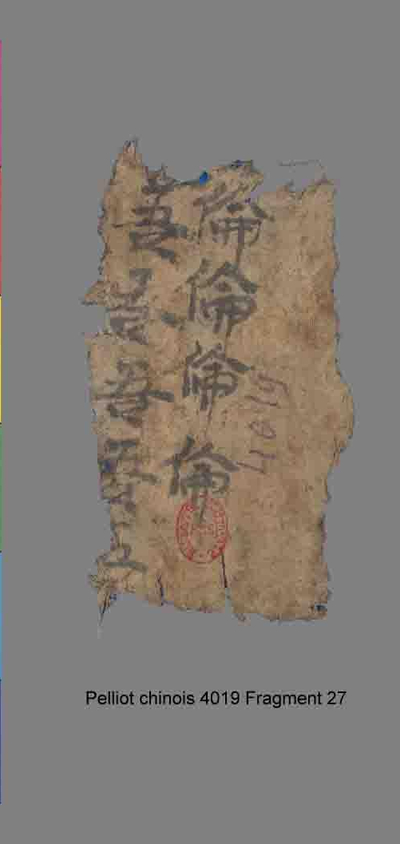 倫倫倫倫
吾吾吾
4019
Pelliot chinois 4019 Fragment 27